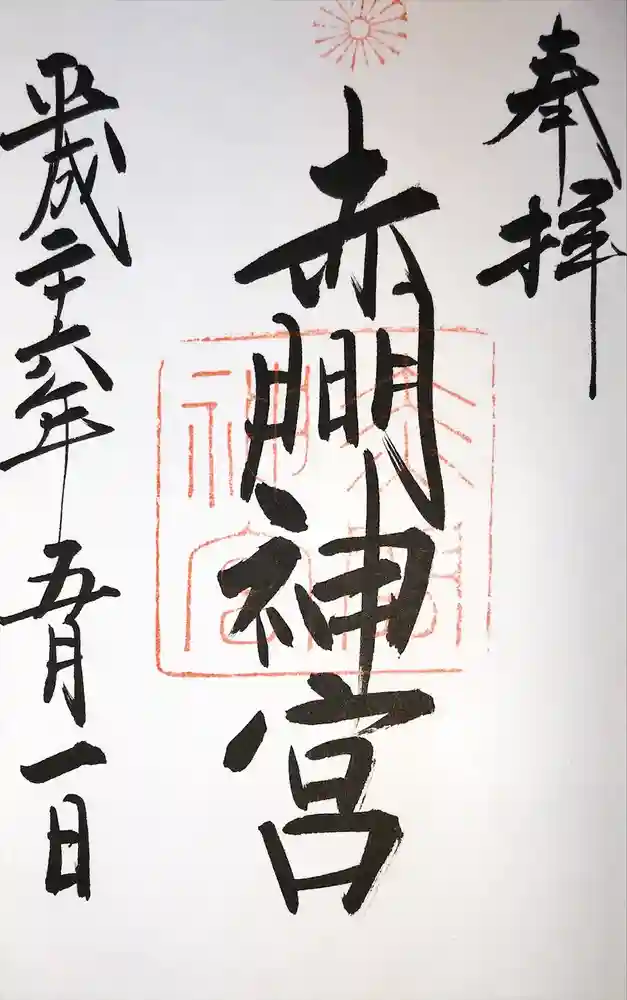 奉拝
赤間神宮
赤間神宮
平成二十六年五月一日